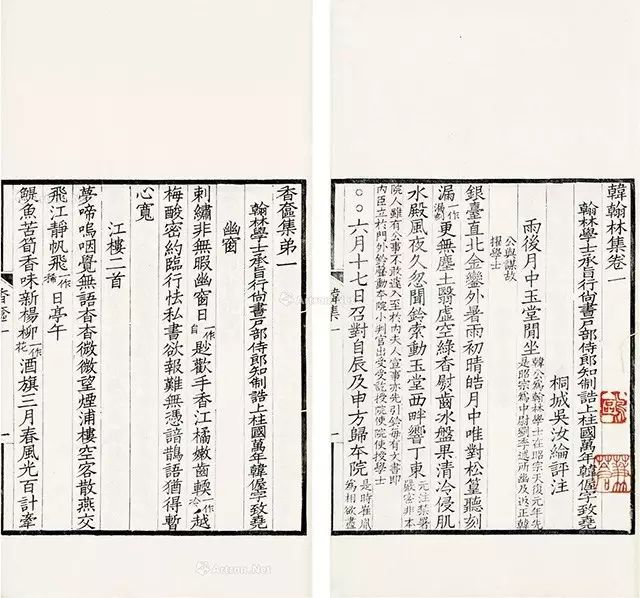 韓翰林集卷一
翰林學士承旨行尚書戶部侍郎知制誥上柱國萬年韓偓字致堯
桐城吳汝綸評注
雨後月中玉堂閒坐韓公為翰林學士在昭宗天復元年先是昭宗為中尉劉季述所幽及返正韓公與謀故擢學士
銀臺直北金鑾外暑雨初晴皓月中唯對松篁聽刻
漏一作漏刻更無塵土翳虛空綠香熨齒冰盤果清冷侵肌
水殿風夜久忽聞鈴索動玉堂西畔響丁東元注禁署嚴密非本
院人雖有公事不敢遽入至於內夫人宣事亦先引鈴每有文書即內臣立於門外鈴聲動本院小判官出受受訖授院使院使授學士
○○六月十七日召對自辰及申方歸本院是時崔胤為相欲盡
韓集一
一
香奩集弟一
翰林學士承旨行尚書戶部侍郎知制誥上柱國萬年韓偓字致堯
幽窗
刺繡非無暇幽窗日一作自尟歡手香江橘嫩齒軟一作冷越
梅酸密約臨行怯私書欲報難無憑諳鵲語猶得暫
心寬
江樓二首
夢啼嗚咽覺無語杳杳微微望煙浦樓空客散燕交
飛江靜帆飛一作揚日亭午
鯷魚苦筍香味新楊柳一作花酒旗三月春風光百計牽
香奩一
一
Artron.Net